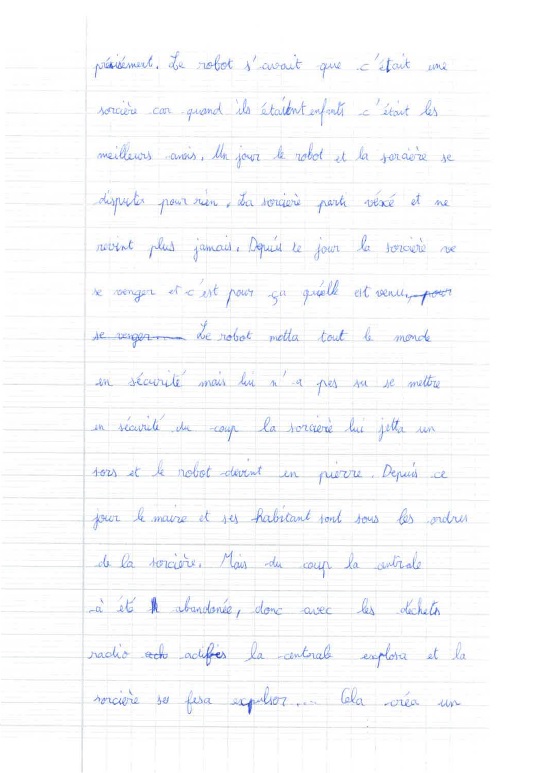 précisément. Le robot s'avait que c'était une
sorcière car quand ils étaient enfants c'était les
meilleurs amis. Un jour le robot et la sorcière se
disputa pour rien. La sorcière parti véxé et ne
revint plus jamais. Depuis ce jour la sorcière ve
se venger et c'est pour ça qu'elle est venu, pour
se venger Le robot metta tout le monde
en sécurité mais lui n'a pas su se mettre
en sécurité du coup la sorcière lui jetta un
sors et le robot devint en pierre. Depuis ce
jour le maire et ses habitant sont sous les ordres
de la sorcière. Mais du coup la centrale
à été abandonée, donc avec les déchets
radio actifés la centrale explora et la
sorcière se fesa expulsor.... Cela créa un